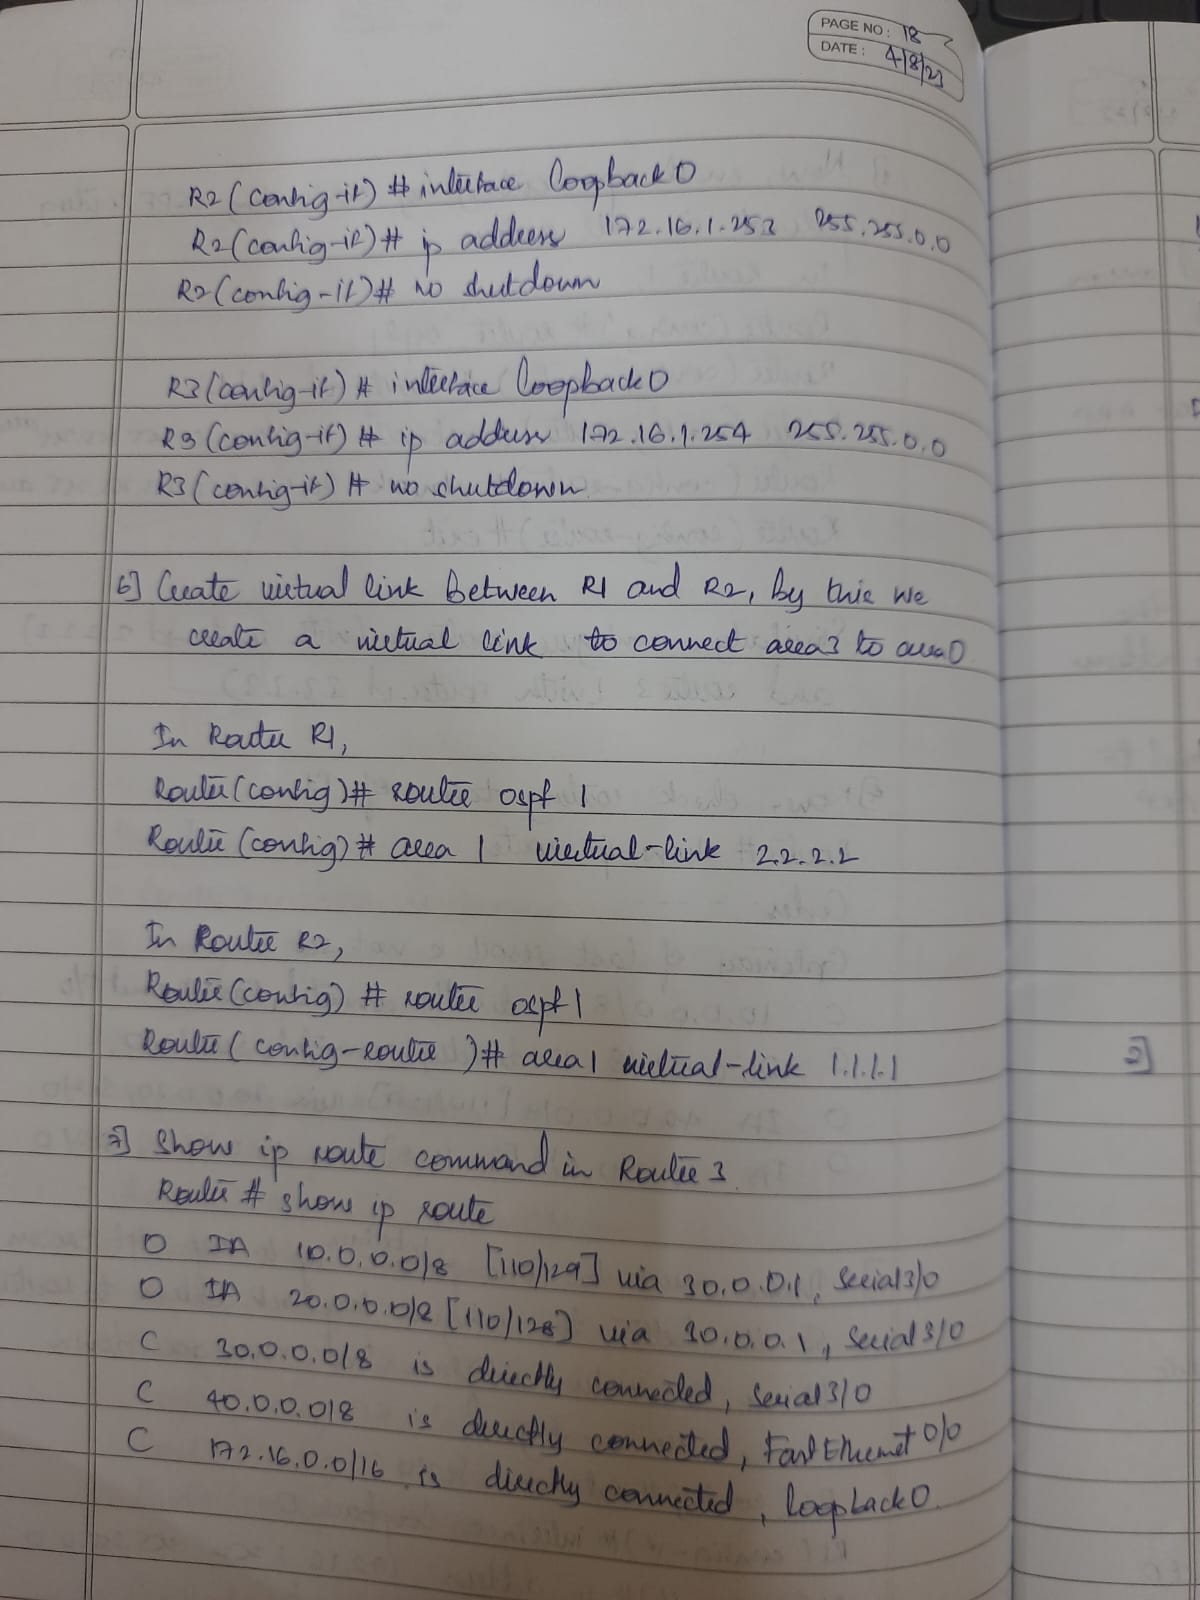 PAGE NO: 18
DATE: 4/8/23
R2(config-if)# interface loopback0
R2(config-if)# ip address 172.16.1.253 255.255.0.0
R2(config-if)# no shutdown
R3(config-if)# interface loopback0
R3(config-if)# ip address 172.16.1.254 255.255.0.0
R3(config-if)# no shutdown
6] Create virtual link between R1 and R2, by this we
create a virtual link to connect area3 to area0
In Router R1,
Router(config)# router ospf 1
Router(config)# area 1 virtual-link 2.2.2.2
In Router R2,
Router(config)# router ospf 1
Router(config-router)# area 1 virtual-link 1.1.1.1
7] Show ip route command in Router 3
Router # show ip route
O IA 10.0.0.0/8 [110/129] via 30.0.0.1, Serial3/0
O IA 20.0.0.0/8 [110/128] via 30.0.0.1, Serial3/0
C 30.0.0.0/8 is directly connected, Serial3/0
C 40.0.0.0/8 is directly connected, FastEthernet0/0
C 172.16.0.0/16 is directly connected, loopback0.